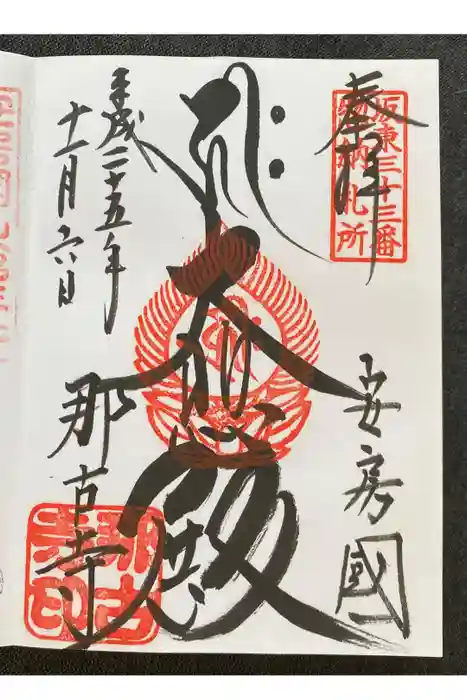 奉拝
坂東三十三番
惣納札所
安房國
大悲殿
平成二十五年
十一月六日
那古寺
那古
寺印